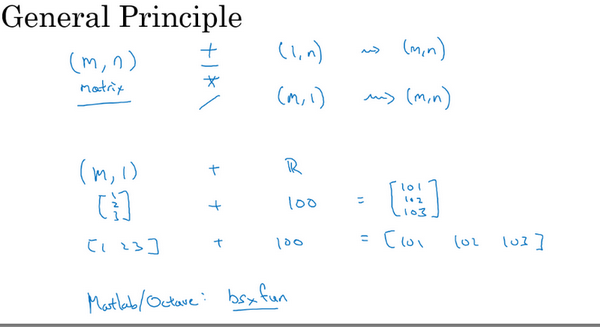 General Principle
(m, n) + (1, n) ⇝ (m, n)
matrix -
*
/ (m, 1) ⇝ (m, n)
(m, 1) + ℝ
[1 2 3] + 100 = [101 102 103]
[1 2 3] + 100 = [101 102 103]
Matlab/Octave: bsxfun